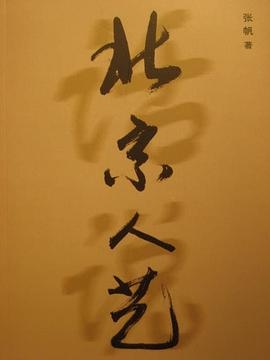 张帆 著
北京人艺